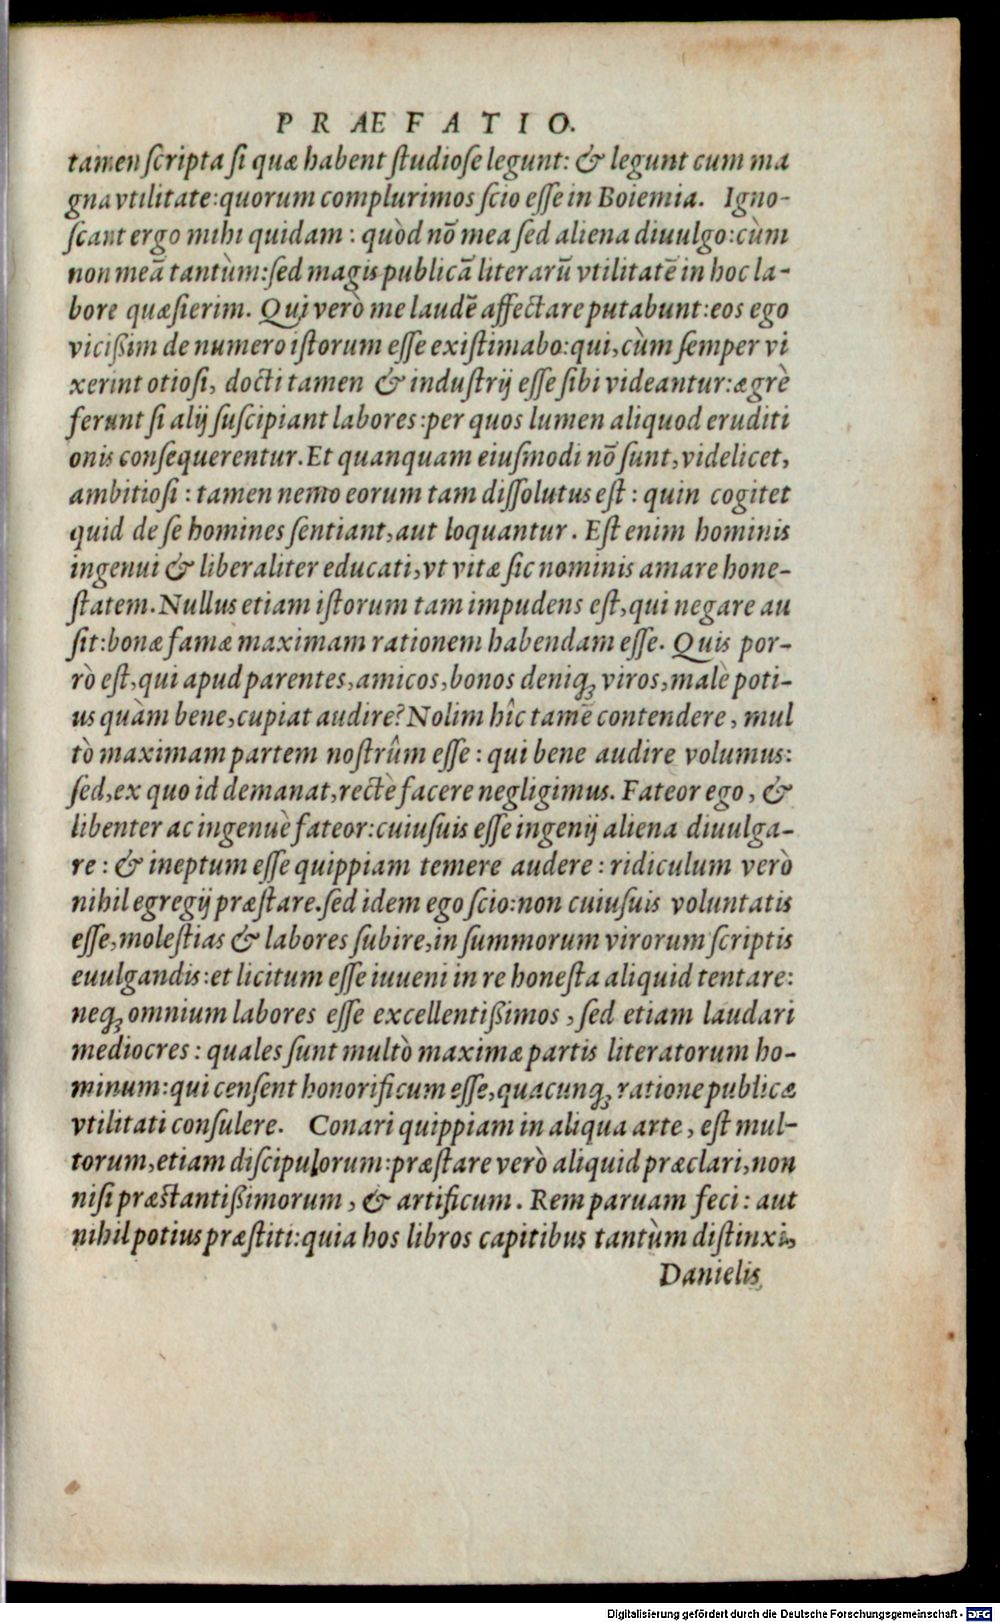 PRÆFATIO.
tamen ſcripta ſi quæ habent ſtudioſe legunt: & legunt cum ma
gna vtilitate: quorum complurimos ſcio eſſe in Boiemia. Igno-
ſcant ergo mihi quidam: quòd nō mea ſed aliena diuulgo: cùm
non meā tantùm: ſed magis publicā literarū vtilitatē in hoc la-
bore quæſierim. Qui verò me laudē affectare putabunt: eos ego
viciſſim de numero iſtorum eſſe exiſtimabo: qui, cùm ſemper vi
xerint otioſi, docti tamen & induſtrij eſſe ſibi videantur: ægrè
ferunt ſi alij ſuſcipiant labores: per quos lumen aliquod eruditi
onis conſequerentur. Et quanquam eiuſmodi nō ſunt, videlicet,
ambitioſi: tamen nemo eorum tam diſſolutus eſt: quin cogitet
quid de ſe homines ſentiant, aut loquantur. Eſt enim hominis
ingenui & liberaliter educati, vt vitæ ſic nominis amare hone-
ſtatem. Nullus etiam iſtorum tam impudens eſt, qui negare au
ſit: bonæ famæ maximam rationem habendam eſſe. Quis por-
rò eſt, qui apud parentes, amicos, bonos deniq; viros, malè poti-
us quàm bene, cupiat audire? Nolim hîc tamē contendere, mul
tò maximam partem noſtrûm eſſe: qui bene audire volumus:
ſed, ex quo id demanat, rectè facere negligimus. Fateor ego, &
libenter ac ingenuè fateor: cuiuſuis eſſe ingenij aliena diuulga-
re: & ineptum eſſe quippiam temere audere: ridiculum verò
nihil egregij præſtare. ſed idem ego ſcio: non cuiuſuis voluntatis
eſſe, moleſtias & labores ſubire, in ſummorum virorum ſcriptis
euulgandis: et licitum eſſe iuueni in re honeſta aliquid tentare:
neq; omnium labores eſſe excellentiſſimos, ſed etiam laudari
mediocres: quales ſunt multò maximæ partis literatorum ho-
minum: qui cenſent honorificum eſſe, quacunq; ratione publicæ
vtilitati conſulere. Conari quippiam in aliqua arte, eſt mul-
torum, etiam diſcipulorum: præſtare verò aliquid præclari, non
niſi præſtantiſſimorum, & artificum. Rem paruam feci: aut
nihil potius præſtiti: quia hos libros capitibus tantùm diſtinxi,
Danielis
Digitalisierung gefördert durch die Deutsche Forschungsgemeinschaft - DFG